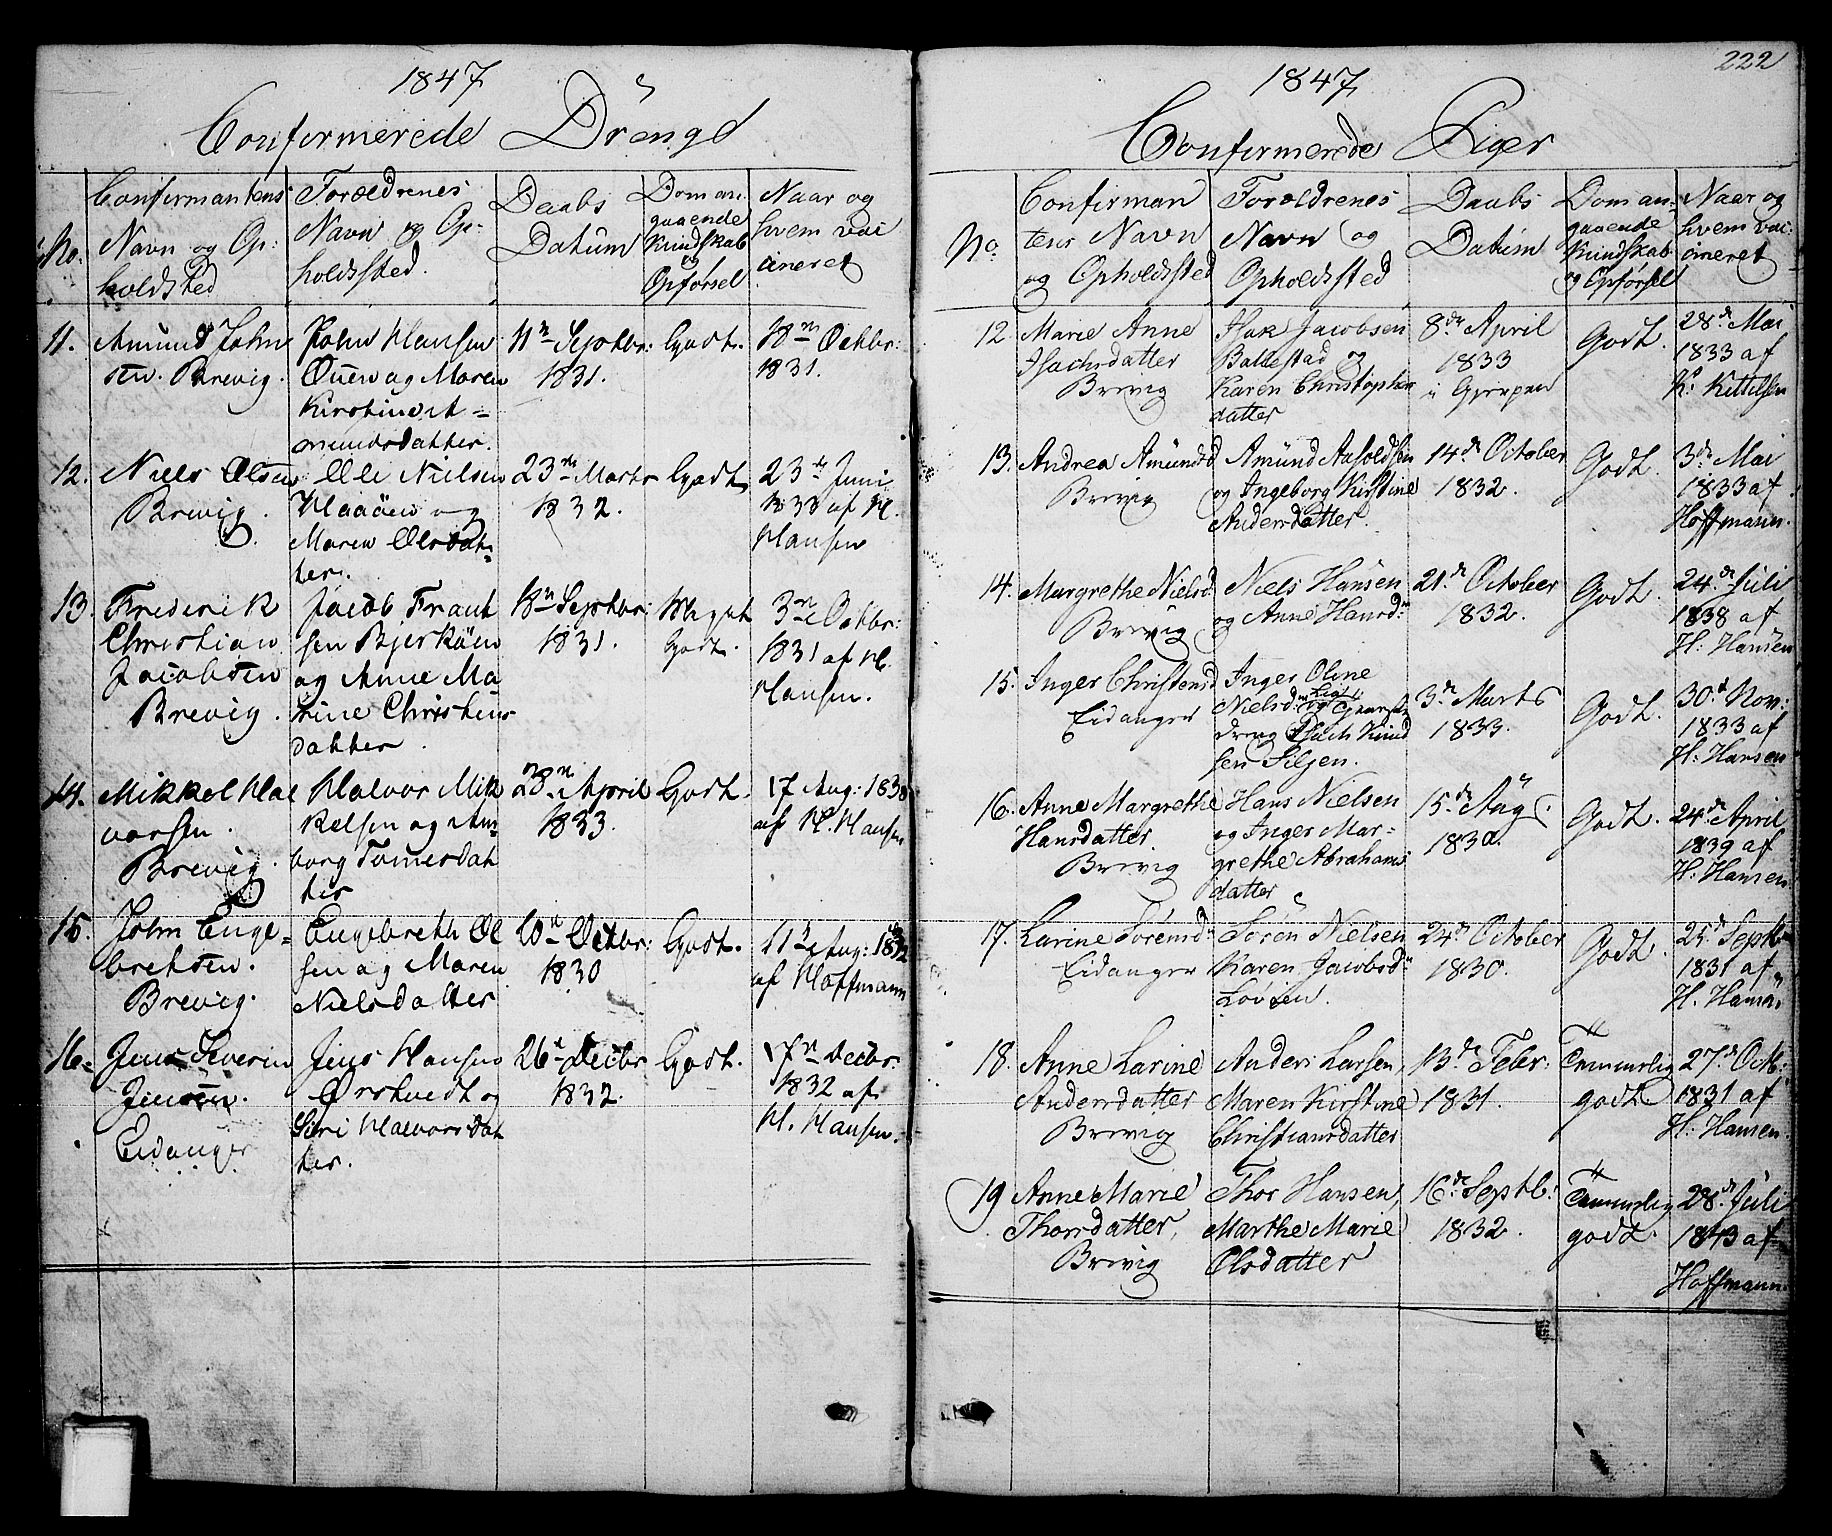 1847
Confirmerede Drenge
No.
Confirmantens
Navn og Op-
holdsted
Forældrenes
Navn og Op-
holdssted.
Daabs
Datum
Dom an-
gaaende
Kundskab
og
Opførsel
Naar og
hvem vac
cineret
11.
Amund John
sen. Brevig.
John Hansen
Ouen og Maren
Kirstine A-
mundsdatter.
11te Septbr:
1831.
Godt.
18de Octbr:
1831.
12.
Niels Olsen
Brevig.
Ole Nielsen
Haaöen og
Maren Olsdat-
ter.
23de Marts
1832.
Godt
23de Juni
1838 af H.
Hansen
13.
Frederik
Christian
Jacobsen
Brevig.
Jacob Frant
sen Bjerköen
og Anne Ma
trine Christens
datter.
18de Septbr:
1831.
Meget
Godt.
3die Octbr:
1831 af H.
Hansen.
14.
Mikkel Hal
vorsen.
Brevig.
Halvor Mik
kelsen og An
borg Tomesdat
ter
28de April
1833.
Godt.
17 Aug: 1838
af H. Hansen
15.
John Enge-
bretsen.
Brevig.
Engebreth Ol
sen og Maren
Nielsdatter
10de Octbr:
1830
Godt.
11te Aug: 1832
af Hoffmann
16.
Jens Severin
Jensen.
Eidanger
Jens Hansen
Ørstvedt og
Siri Halvorsdat
ter.
26de Decbr
1832.
Godt.
17de Decbr:
1832 af
H. Hansen.
222
1847
Confirmerede Piger
No
Confirman
tens Navn
og Opholdssted
Forældrenes
Navn og
Opholdssted
Daabs
Datum
Dom an-
gaaende
Kundskab
og Opførsel
Naar og
hvem vac
cineret
12.
Marie Anne
Isachsdatter
Brevig
Isak Jacobsen
Ballestad og
Karen Christopher
datter
8de April
1833
i Gjerpen
Godt.
28de Mai
1833 af
K. Kittilsen
13.
Andrea Amundsd
Brevig
Amund Aasoldsen
og Ingeborg Kirstine
Andersdatter.
14de October
1832.
Godt.
3de Mai
1833 af
Hoffmann.
14.
Margrethe Nielsd
Brevig
Niels Hansen
og Anne Hansd:
21de October
1832.
Godt.
24de Juli
1838 af
H: Hansen
15.
Inger Christensd
Eidanger
Inger Oline
Nielsd:
dreng Isach Knud
sen Siljen.
3de Marts
1833.
Godt.
30te Nov:
1833 af
H: Hansen
16.
Anne Margrethe
Hansdatter.
Brevig
Hans Nielsen
og Inger Mar-
grethe Abrahams
datter
15de Aug.
Godt.
24de April
1839 af
H: Hansen
17.
Larine Sørensd:
Eidanger
Søren Nielsen
Karen Jacobsd:
Løvsen.
24de October
1830.
Godt.
25de Septb
1831 af
H. Hansen
18.
Anne Larine
Andersdatter
Brevig
Anders Larsen,
Maren Kirstine
Christiansdatter
13de Febr:
1831.
Temmelig
godt
27de Octb:
1831 af
H: Hansen.
19
Anne Marie
Thorsdatter,
Brevig
Thor Hansen,
Marthe Marie
Olsdatter
16de Septb:
1832.
Temmelig
godt.
28de Juli
1843 af
Hoffmann.